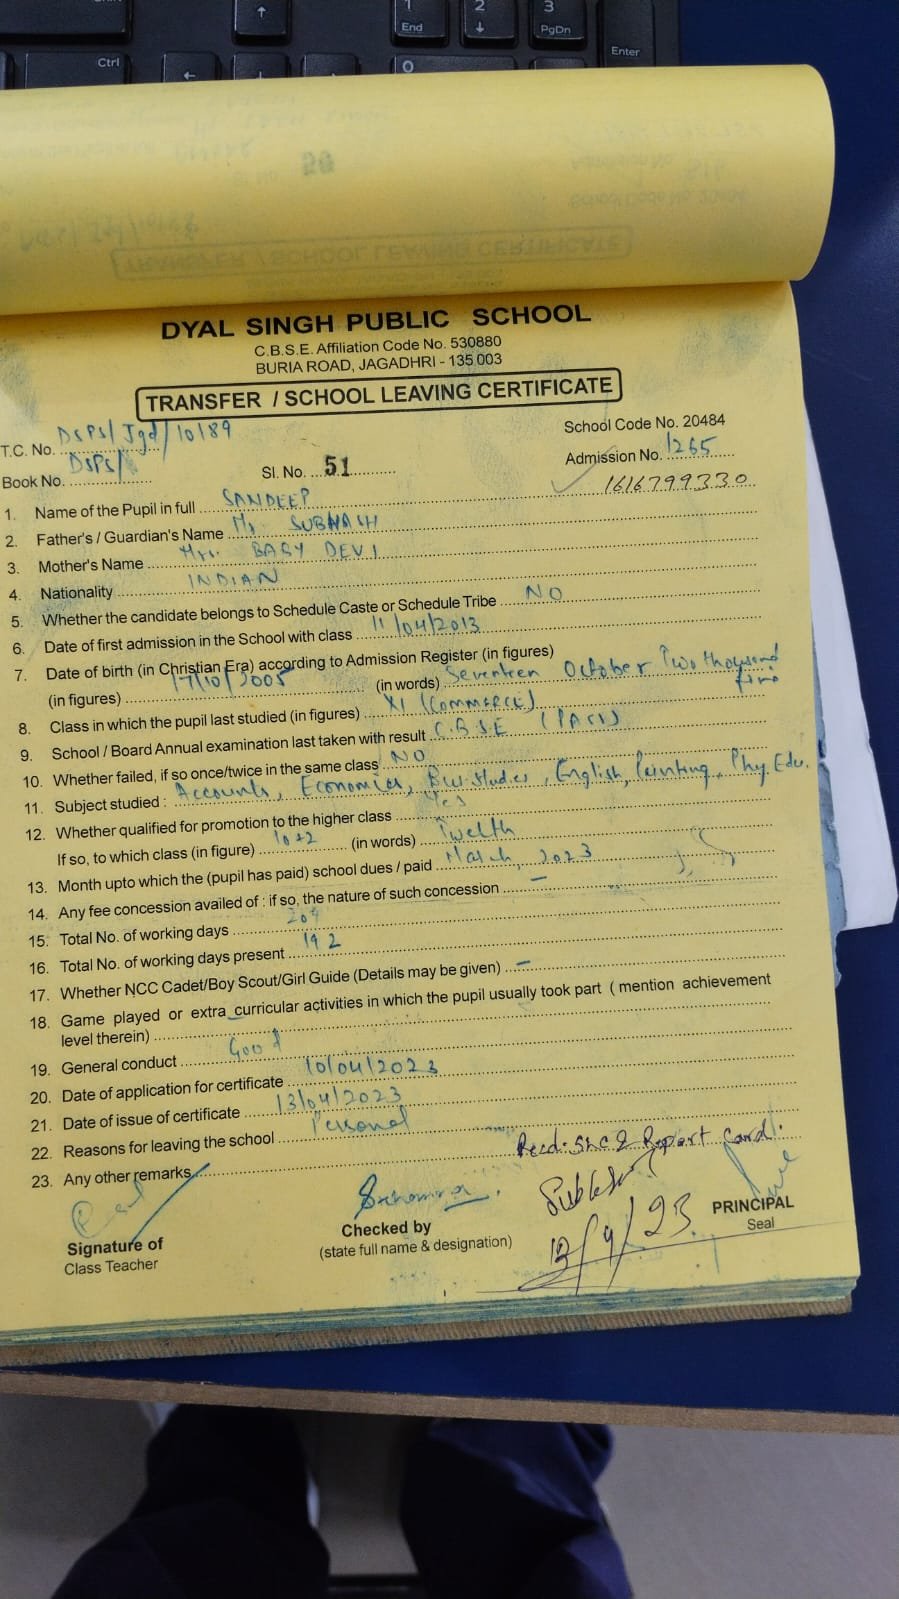 Ctrl
1
End
2
3
PgDn
0
Enter
DYAL SINGH PUBLIC SCHOOL
C.B.S.E. Affiliation Code No. 530880
BURIA ROAD, JAGADHRI - 135 003
TRANSFER / SCHOOL LEAVING CERTIFICATE
School Code No. 20484
T.C. No. DSPS/Jgd/10189
Admission No. 1265
Book No. DSPS/
Sl. No. 51
1616799330
1. Name of the Pupil in full SANDEEP
2. Father's / Guardian's Name Mr. SUBHASH
3. Mother's Name Mrs. BABY DEVI
4. Nationality INDIAN
5. Whether the candidate belongs to Schedule Caste or Schedule Tribe NO
6. Date of first admission in the School with class 11/04/2013
7. Date of birth (in Christian Era) according to Admission Register (in figures)
(in figures) 17/10/2005 (in words) Seventeen October Two thousand five
8. Class in which the pupil last studied (in figures) XI (COMMERCE)
9. School / Board Annual examination last taken with result C.B.S.E (PASS)
10. Whether failed, if so once/twice in the same class NO
11. Subject studied : Accounts, Economics, Bus. Studies, English, Painting, Phy. Edu.
12. Whether qualified for promotion to the higher class Yes
If so, to which class (in figure) 10+2 (in words) Twelth
13. Month upto which the (pupil has paid) school dues / paid March, 2023
14. Any fee concession availed of : if so, the nature of such concession -
15. Total No. of working days 204
16. Total No. of working days present 192
17. Whether NCC Cadet/Boy Scout/Girl Guide (Details may be given) -
18. Game played or extra curricular activities in which the pupil usually took part ( mention achievement
level therein) -
19. General conduct Good
20. Date of application for certificate 10/04/2023
21. Date of issue of certificate 13/04/2023
22. Reasons for leaving the school Personal
23. Any other remarks
Recd. SLC & Report Card.
13/4/23
Signature of
Class Teacher
Checked by
(state full name & designation)
PRINCIPAL
Seal